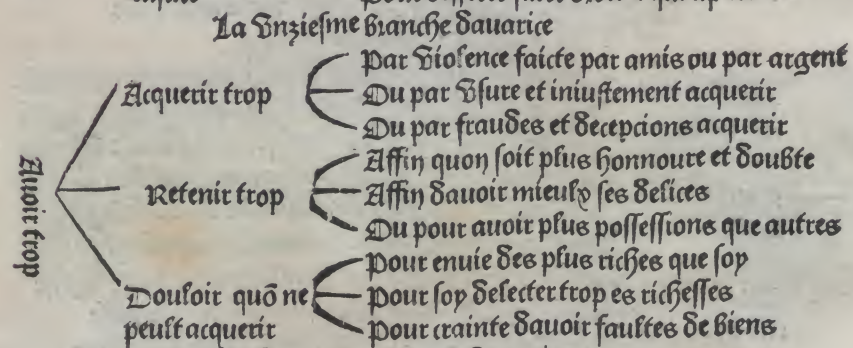 La unziesme branche dauarice
Auoir trop
Acquerir trop
Par violence faicte par amis ou par argent
Ou par vsure et iniustement acquerir
Ou par fraudes et decepcions acquerir
Retenir trop
Affin quon soit plus honnoure et doubte
Affin dauoir mieulx ses delices
Ou pour auoir plus possessions que autres
Douloir quõ ne
peult acquerir
Pour enuie des plus riches que soy
Pour soy delecter trop es richesses
Pour crainte dauoir faultes de biens